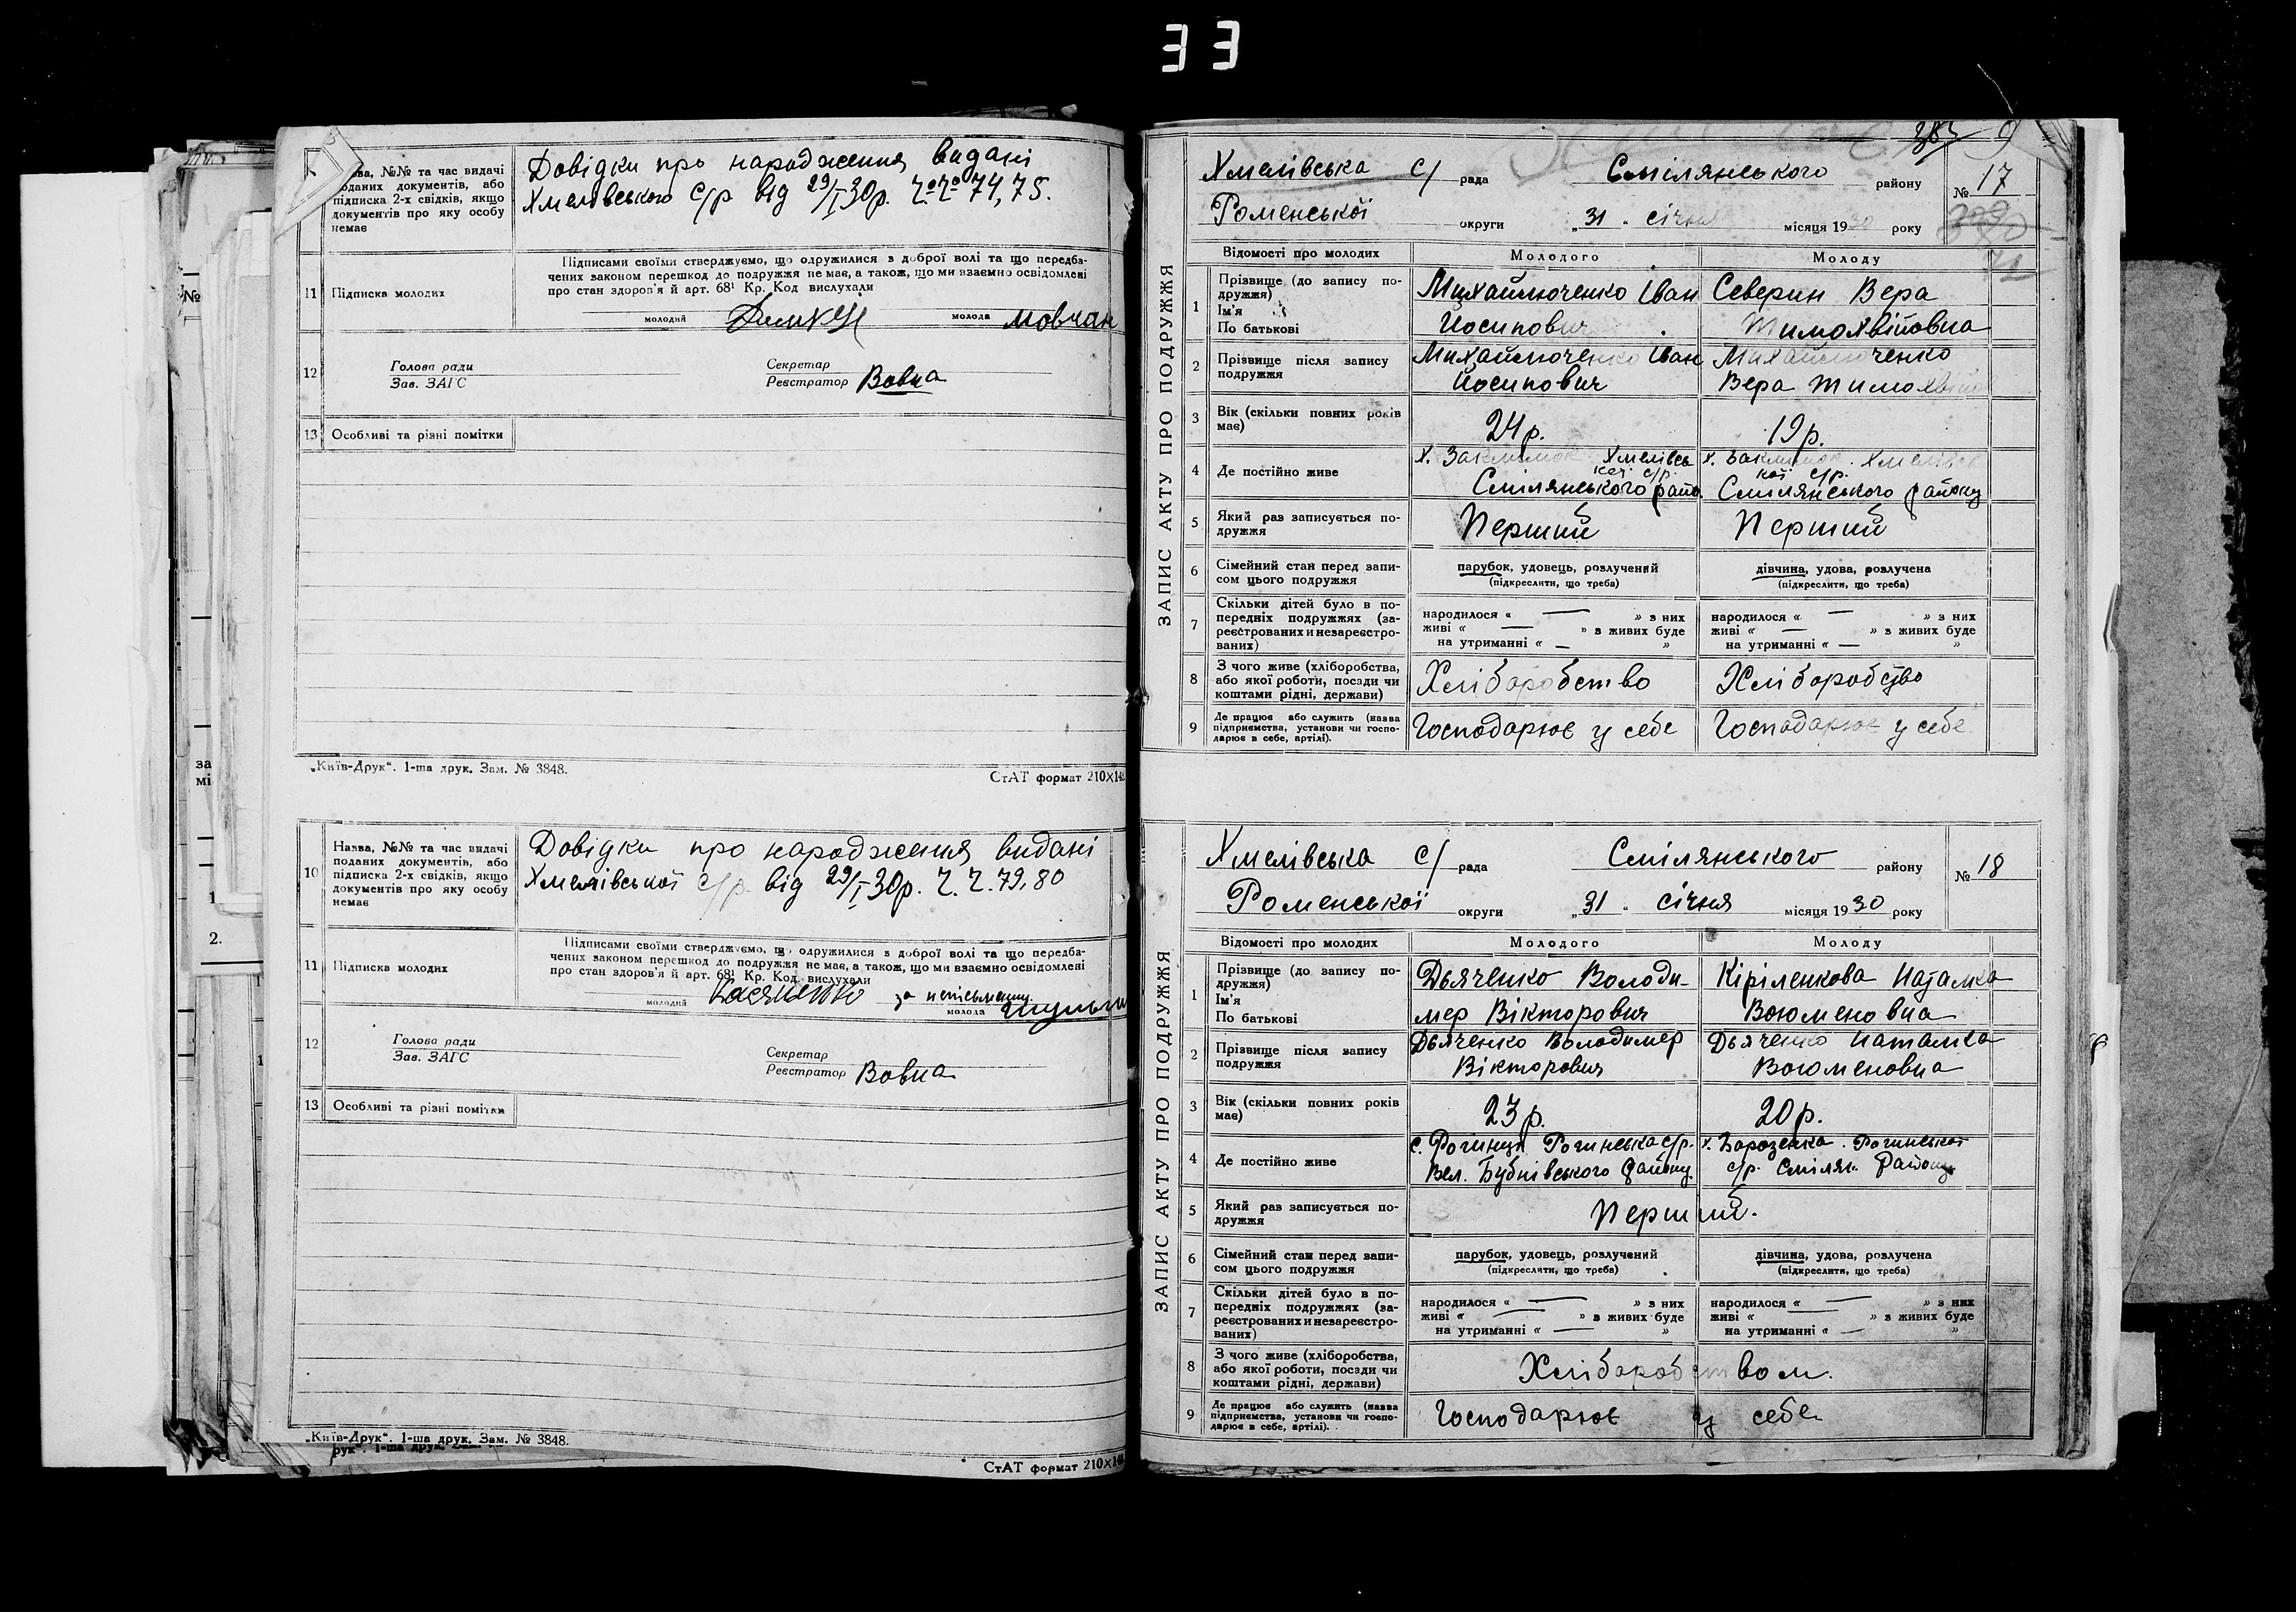 33
Назва, №№ та час видачі
поданих документів, або
підписка 2-х свідків, якщо
документів про яку особу
немає
Довідки про народження видані
Хмелівського с/р від 29/I 30р. Ч.Ч. 74, 75.
11 Підписка молодих
Підписами своїми стверджуємо, що одружилися з доброї волі та що передба-
чених законом перешкод до подружжя не має, а також, що ми взаємно освідомлені
про стан здоров'я й арт. 68¹ Кр. Код вислухали
молодий молода Мовчан
12 Голова ради
Зав. ЗАГС
Секретар
Реєстратор Вовна
13 Особливі та різні помітки
„Київ-Друк“. 1-ша друк. Зам. № 3848.
СтАТ формат 210×14
10 Назва, №№ та час видачі
поданих документів, або
підписка 2-х свідків, якщо
документів про яку особу
немає
Довідки про народження видані
Хмелівської с/р. від 29/I 30р. Ч. Ч. 79, 80
11 Підписка молодих
Підписами своїми стверджуємо, що одружилися з доброї волі та що передба-
чених законом перешкод до подружжя не має, а також, що ми взаємно освідомлені
про стан здоров'я й арт. 68¹ Кр. Код. вислухали
молодий за неписьменну молода
12 Голова ради
Зав. ЗАГС
Секретар
Реєстратор Вовна
13 Особливі та різні помітки
„Київ-Друк“. 1-ша друк. Зам. № 3848.
СтАТ формат 210×14
ЗАПИС АКТУ ПРО ПОДРУЖЖЯ
Хмелівська с/ рада Смілянського району № 17
Роменської округи „31“ січня місяця 1930 року
Відомості про молодих Молодого Молоду
1 Прізвище (до запису по-
дружжя)
Ім'я
По батькові
Михайлюченко Іван
Йосипович
Северин Вера
Тимохвіївна
2 Прізвище після запису
подружжя
Михайлюченко Іван
Йосипович
Михайлюченко
Вера
3 Вік (скільки повних років
має)
24р. 19р.
4 Де постійно живе
х. Хмелівсь
кої с/р.
Смілянського райо.
х. Хмелівсь
кої с/р.
Смілянського району
5 Який раз записується по-
дружжя
Перший Перший
6 Сімейний стан перед запи-
сом цього подружжя
парубок, удовець, розлучений
(підкреслити, що треба)
дівчина, удова, розлучена
(підкреслити, що треба)
7 Скільки дітей було в по-
передніх подружжях (за-
реєстрованих и незареєстро-
ваних)
народилося « — » з них
живі « — » з живих буде
на утриманні « — »
народилося « — » з них
живі « — » з живих буде
на утриманні « — »
8 З чого живе (хліборобства,
або якої роботи, посади чи
коштами рідні, держави)
Хліборобство Хліборобство
9 Де працює або служить (назва
підприємства, установи чи госпо-
дарює в себе, артілі).
Господарює у себе Господарює у себе
ЗАПИС АКТУ ПРО ПОДРУЖЖЯ
Хмелівська с/ рада Смілянського району № 18
Роменської округи „31“ січня місяця 1930 року
Відомості про молодих Молодого Молоду
1 Прізвище (до запису по-
дружжя)
Ім'я
По батькові
Дьяченко Володи-
мер Вікторович
Кіріленкова Наталка
2 Прізвище після запису
подружжя
Дьяченко Володимер
Вікторович
Дьяченко Наталка
3 Вік (скільки повних років
має)
23р. 20р.
4 Де постійно живе
с. Рогинці Рогинська с/р.
Вел. Бубнівського району
х. Рогинської
с/р. Смілян. Району
5 Який раз записується по-
дружжя
Перший.
6 Сімейний стан перед запи-
сом цього подружжя
парубок, удовець, розлучений
(підкреслити, що треба)
дівчина, удова, розлучена
(підкреслити, що треба)
7 Скільки дітей було в по-
передніх подружжях (за-
реєстрованих и незареєстро-
ваних)
народилося « — » з них
живі « — » з живих буде
на утриманні « — »
народилося « — » з них
живі « — » з живих буде
на утриманні « — »
8 З чого живе (хліборобства,
або якої роботи, посади чи
коштами рідні, держави)
Хліборобством.
9 Де працює або служить (назва
підприємства, установи чи госпо-
дарює в себе, артілі).
Господарює у себе